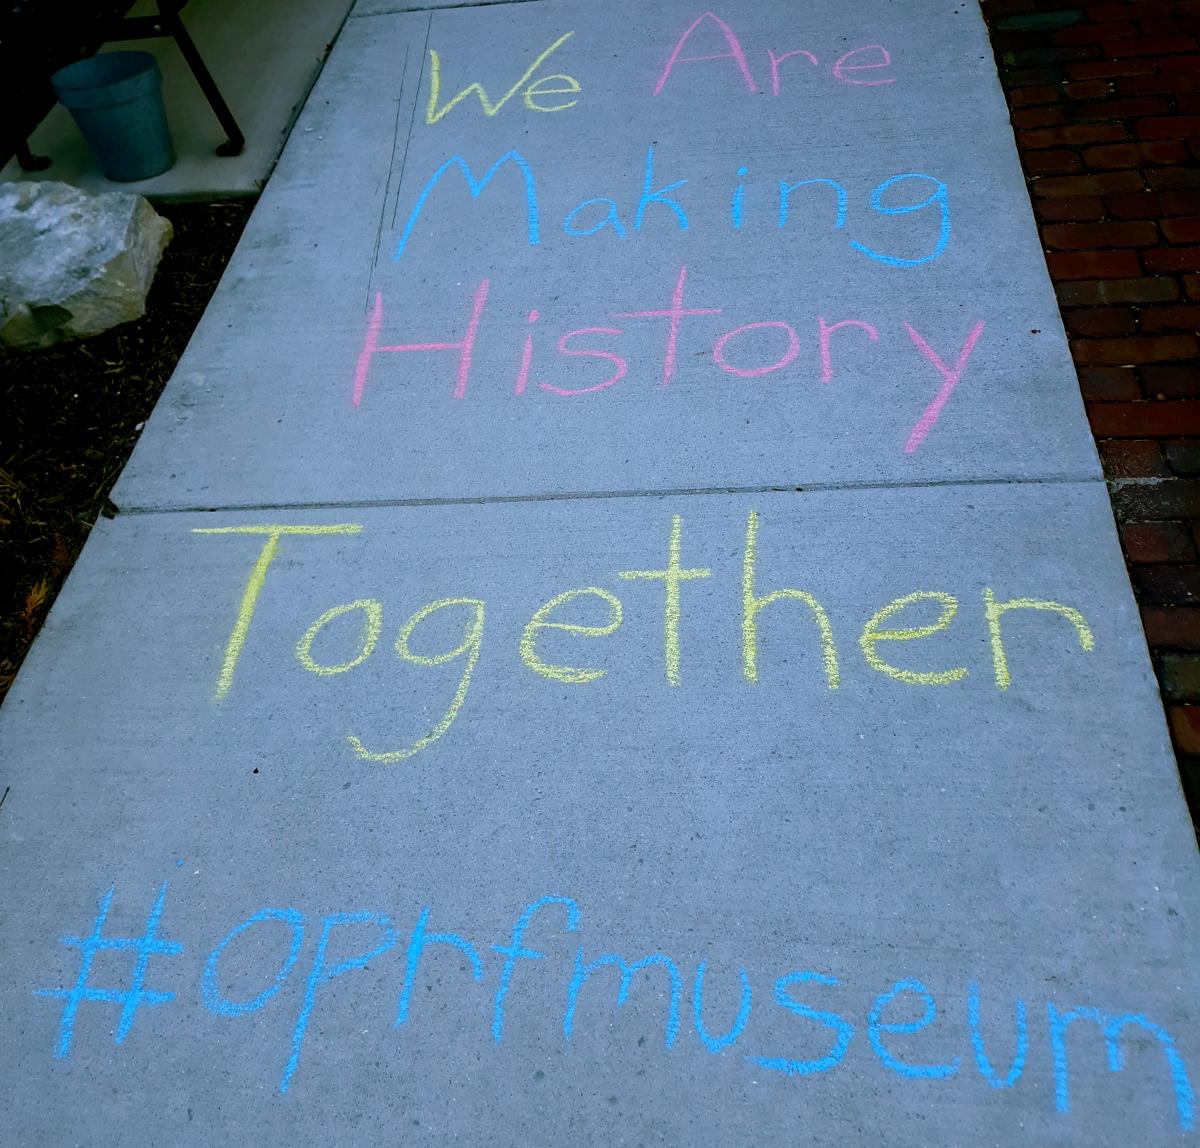 We Are
Making
History
Together
#oprfmuseum